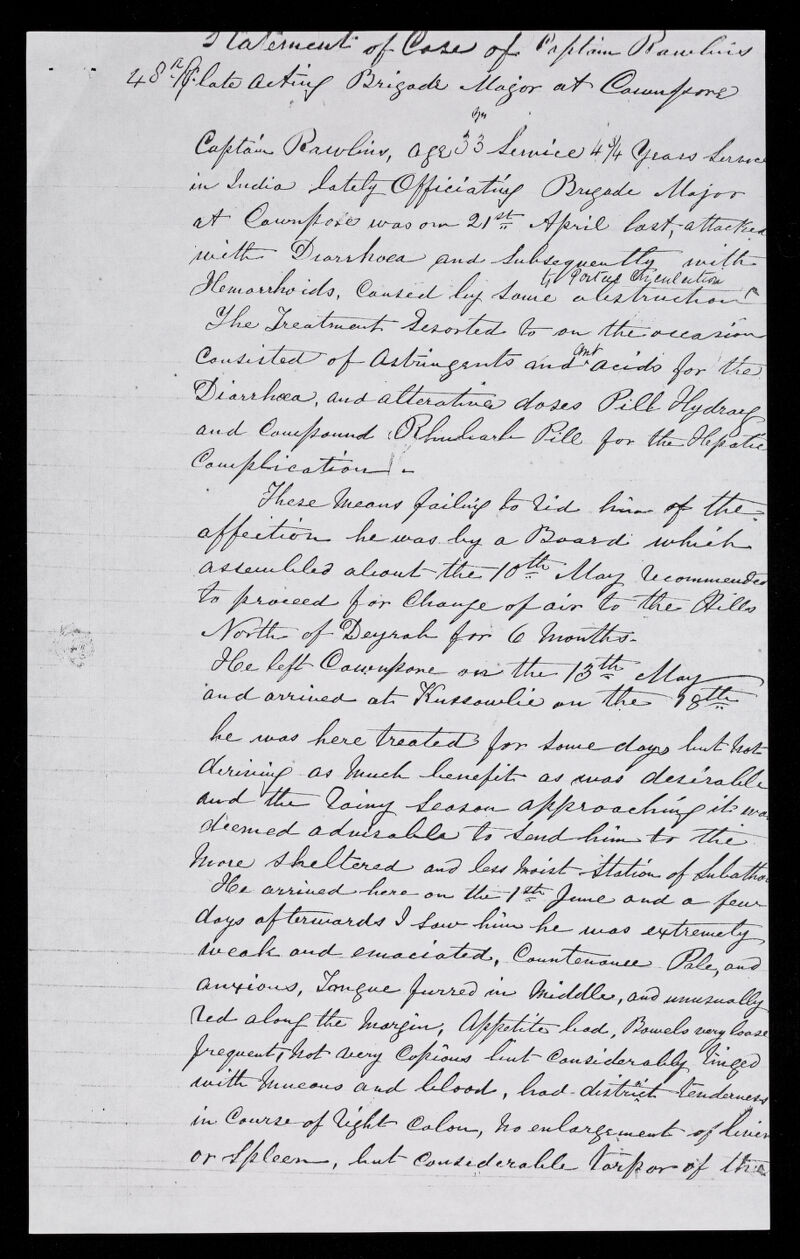 Statement of Case of Captain Rawlins
48th late Acting Brigade Major at Cawnpore
Captain Rawlins, age 33 Service 4 3/4 Years Service
in India lately Officiating Brigade Major
at Cawnpore was on 21st April last, attacked
with Diarrhoea and Subsequently with
to Portal Circulation
Hemorrhoids, Caused by Some obstruction ^
The Treatment Resorted to on the occasion
Consisted of Astringents and ant acids for the
Diarrhoea, and alterative doses Pill Hydrarg
and Compound Rhubarb Pill for the Hepatic
Complication -
These Means failing to rid him of the
affection he was by a Board which
assembled about the 10th May recommended
to proceed for Change of air to the Hills
North of Deyrah for 6 Months-
He left Cawnpore on the 13th May
and arrived at Kussowlie on the 18th
he was here treated for Some days but Not
deriving as Much benefit as was desirable
and the rainy Season approaching it was
deemed advisable to Send him to the
More Sheltered and less Moist Station of Subathoo
He arrived here on the 1st June and a few
days afterwards I Saw him he was extremely
weak and emaciated, Countenance Pale, and
anxious, Tongue furred in Middle, and unusually
red along the Margin, Appetite bad, Bowels very loose
frequent, Not very Copious but Considerably tinged
with Mucous and blood, had distinct tenderness
in Course of right Colon, No enlargement of liver
or Spleen, but Considerable torpor of the